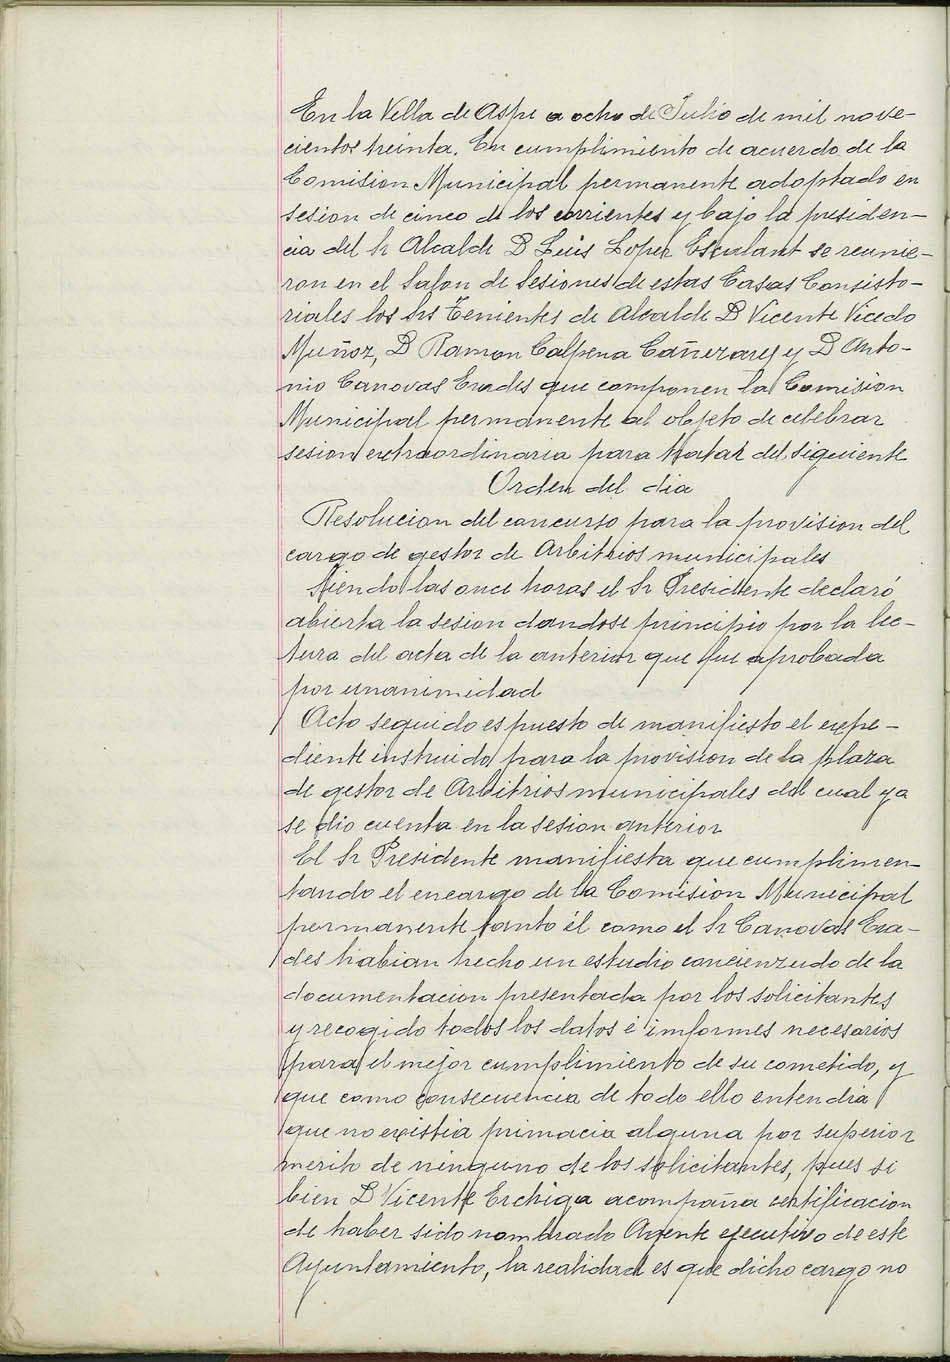 En la Villa de Aspe a ocho de Julio de mil nove-
cientos treinta. En cumplimiento de acuerdo de la
Comision Municipal permanente adoptado en
sesion de cinco de los corrientes y bajo la presiden-
cia del Sr Alcalde D Luis Lopez Escolant se reunie-
ron en el Salon de Sesiones de estas Casas Consisto-
riales los Srs Tenientes de Alcalde D Vicente Vicedo
Muñoz, D Ramon Calpena Cañizares y D Anto-
nio Canovas Erades que componen la Comision
Municipal permanente al objeto de celebrar
sesion extraordinaria para tratar del siguiente
Orden del dia
Resolucion del concurso para la provision del
cargo de gestor de Arbitrios municipales
Siendo las once horas el Sr Presidente declaró
abierta la sesion dandose principio por la lec-
tura del acta de la anterior que fue aprobada
por unanimidad
Acto seguido es puesto de manifiesto el expe-
diente instruido para la provision de la plaza
de gestor de Arbitrios municipales del cual ya
se dio cuenta en la sesion anterior
El Sr Presidente manifiesta que cumplimen-
tando el encargo de la Comision Municipal
permanente tanto él como el Sr Canovas Era-
des habian hecho un estudio concienzudo de la
documentacion presentada por los solicitantes
y recogido todos los datos é informes necesarios
para el mejor cumplimiento de su cometido, y
que como consecuencia de todo ello entendia
que no existia primacia alguna por superior
merito de ninguno de los solicitantes, pues si
bien D Vicente Erchiga acompaña certificacion
de haber sido nombrado Agente ejecutivo de este
Ayuntamiento, la realidad es que dicho cargo no